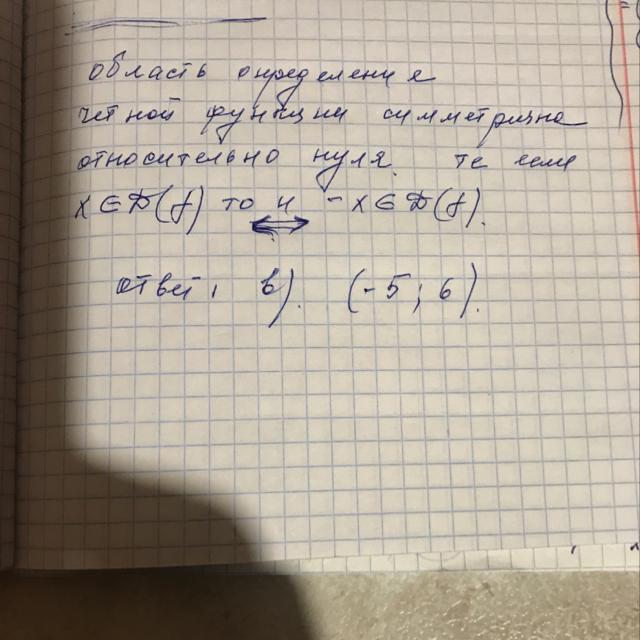 область определения
четной функции симметрична
относительно нуля. те если
x ∈ D(f) то и -x ∈ D(f).
ответ: в). (-5; 6).